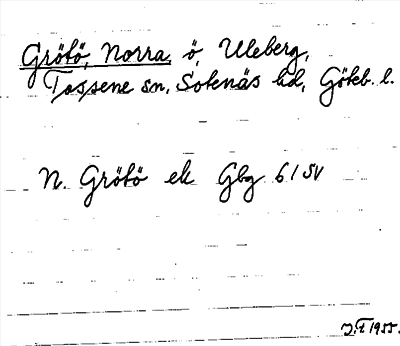 Grötö, Norra, ö, Uleberg,
Tossene sn, Sotenäs hd, Göteb. l.
N. Grötö ek Gbg 61 SV
1955.